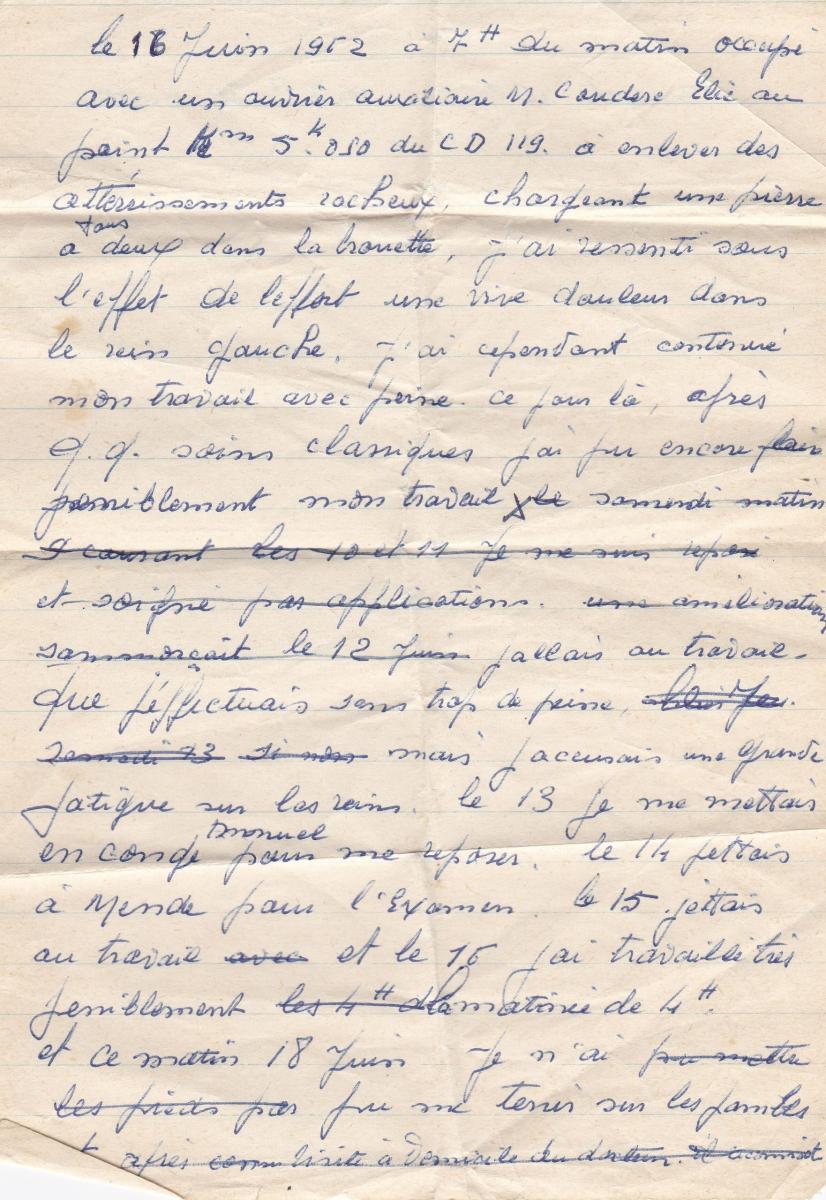 le 16 Juin 1952 à 7H du matin occupé
avec un ouvrier auxiliaire M. Couderc Elie au
point Km 5k.050 du CD 119. à enlever des
atterrissements rocheux, chargeant une pierre
tous
a deux dans la brouette, j'ai ressenti sous
l'effet de l'effort une vive douleur dans
le rein gauche. j'ai cependant continué
mon travail avec peine. ce jour là, après
q.q. soins classiques j'ai pu encore
peniblement mon travail le samedi matin
courant les 10 et 11 Je me suis reposé
et soigné par applications. une amélioration
sammorçait le 12 Juin jallais au travail-
que j'éffectuais sans trop de peine,
Samedi 13 si non mais jaccusais une grande
fatigue sur les reins. le 13 je me mettais
annuel
en congé pour me reposer. le 14 jettais
à Mende pour l'Examen. le 15 jettais
au travail avec et le 16 jai travaillé très
peniblement les 4H de la matinée de 4H.
et ce matin 18 Juin Je n'ai pu mettre
les pieds par pu me tenir sur les jambes
après visite à Domicile du docteur. il